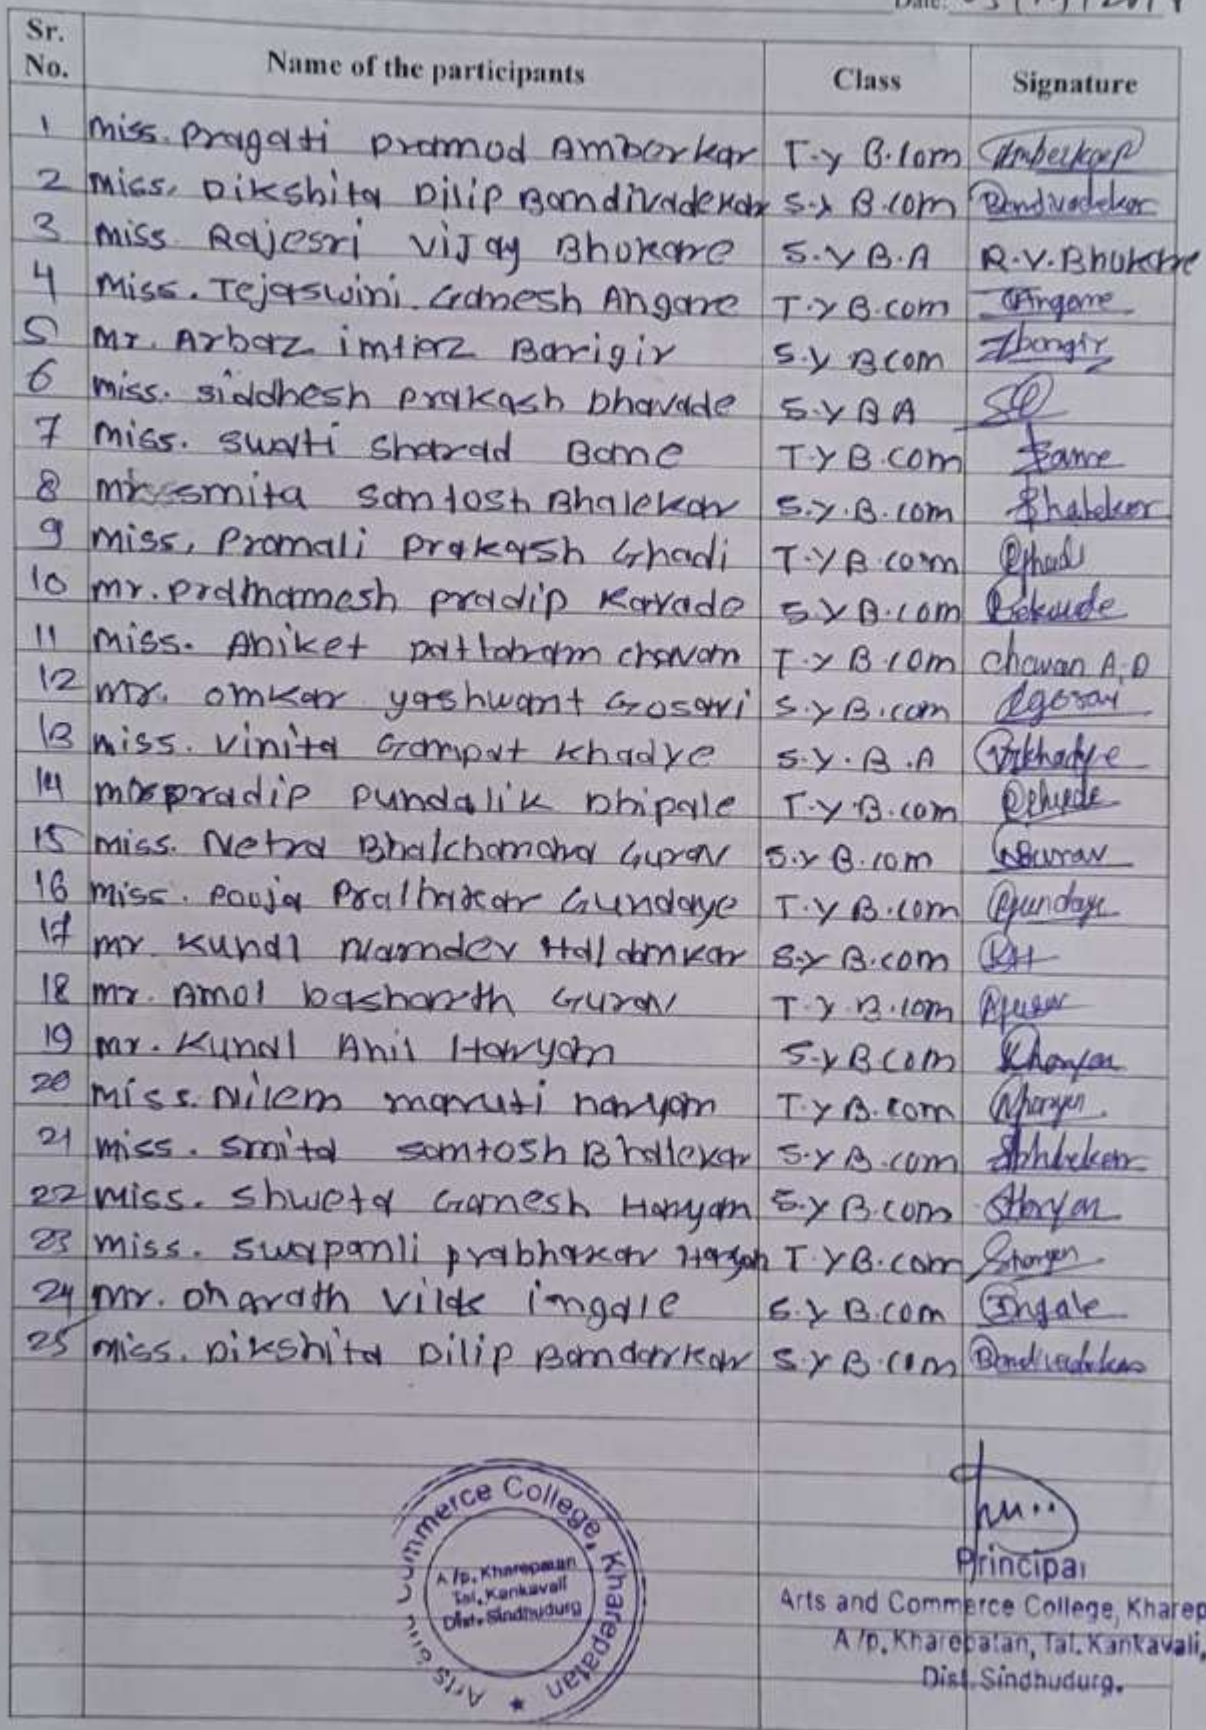 Date:
Sr. No. Name of the participants Class Signature
1 miss. Pragati Pramod Amberkar T.y B.com Amberkar
2 miss. Dikshita Dilip Bandivadekar S.y B.com Bandivadekar
3 miss Rajesri Vijay Bhokare S.Y B.A R.V.Bhokare
4 Miss. Tejaswini Ganesh Angare T.Y B.com Angare
5 Mr. Arbaz imtiaz Barigir S.y B com
6 miss. siddhesh prakash bhavade S.Y B A
7 miss. swati sharad Bane T.Y B.com Bane
8 smita santosh Bhalekar S.y.B.com Bhalekar
9 miss, Promali Prakash Ghadi T.Y B.com Ghadi
10 mr. prathamesh pradip Karade S.y B.com
11 miss. Aniket Dattaram chavan T.y B.com Chavan A.D
12 mr. omkar yashwant Gosavi S.y B.com
13 miss. Vinita Ganpat Khadye S.y.B.A Vikhadye
14 pradip pundalik Dhipale T.y B.com
15 miss. Netra Bhalchandra Gurav S.y B.com Gurav
16 miss. Pooja Pralhakar Gundaye T.y B.com Gundaye
17 mr Kunal Namdev Haldamkar S.y B.com KH
18 mr. Amol basharth Gurav T.y.B.com
19 mr. Kunal Anil Haryan S.y B com Kharyan
20 miss. Nilem maruti haryan T.y B.com Nharyan
21 miss. Smita santosh Bhallekar S.y B.com
22 miss. Shweta Ganesh Haryan S.y B.com SHaryan
23 miss. Swapanli prabhakar Haryan T.Y B.com
24 mr. Dharath Vilas ingale S.y B.com Ingale
25 miss. Dikshita Dilip Bandarkar S.y B.com Bandivadekar
Arts and Commerce College, Kharepatan ★
A/p. Kharepatan
Tal. Kankavali
Dist. Sindhudurg
Principal
Arts and Commerce College, Kharep
A/p. Kharepatan, Tal. Kankavali,
Dist. Sindhudurg.